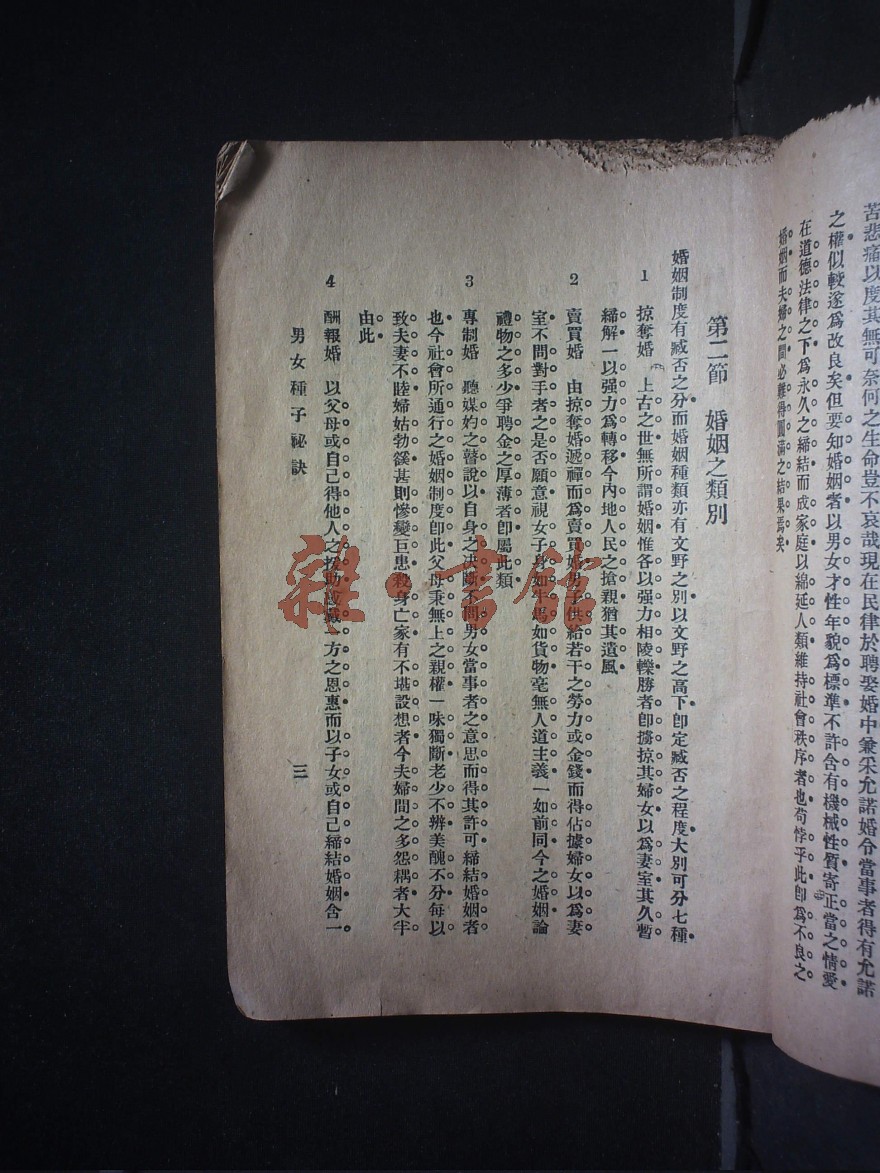 苦悲痛以度其無可奈何之生命豈不哀哉現在民律於聘娶婚中兼采允諾婚令當事者得有允諾
之權似較遂為改良矣但要知婚姻者以男女才性年貌為標準不許含有機械性質寄正當之情愛
在道德法律之下為永久之締結而成家庭以綿延人類維持社會秩序者也苟悖乎此卽為不良之
婚姻而夫婦之間必難得圓滿之結果焉矣
第二節 婚姻之類別
婚姻制度有臧否之分而婚姻種類亦有文野之別以文野之高下卽定臧否之程度大別可分七種
1 掠奪婚 上古之世無所謂婚姻惟各以强力相陵轢勝者卽擄掠其婦女以為妻室其久暫
締解一以强力為轉移今內地人民之搶親猶其遺風
2 賣買婚 由掠奪婚遞禪而為賣買婚男子供給若干之勞力或金錢而得佔據婦女以為妻
室不問對手者之是否願意視女子身如牛馬如貨物毫無人道主義一如前同今之婚姻論
禮物之多少爭聘金之厚薄者卽屬此類
3 專制婚 聽媒妁之瞽說以自身之决斷不問男女當事者之意思而得其許可締結婚姻者
也今社會所通行之婚姻制度卽此父母秉無上之親權一味獨斷老少不辨美醜不分每以
致夫妻不睦婦姑勃谿甚則慘變巨患殺身亡家有不堪設想者今夫婦間之多怨耦者大半
由此
4 酬報婚 以父母或自己得他人之援助或感一方之恩惠而以子女或自己締結婚姻含一
男女種子祕訣
三
雜·書館